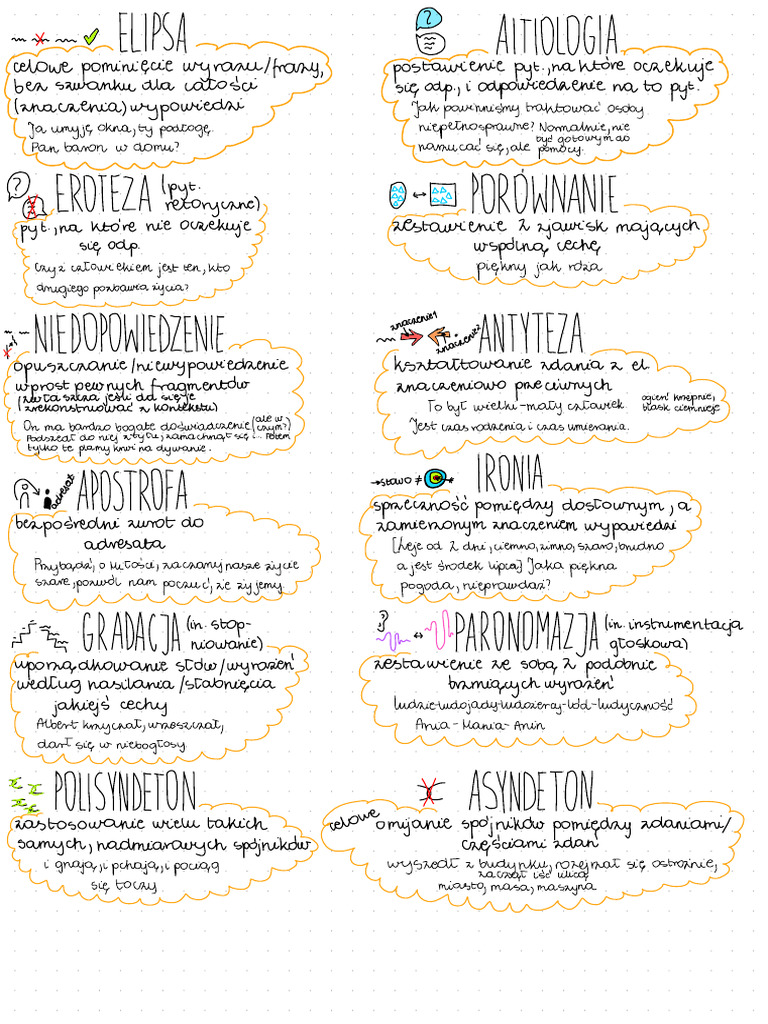 ELIPSA
celowe pominięcie wyrazu/frazy,
bez szwanku dla całości
(znaczenia) wypowiedzi
Ja umyję okna, ty podłogę.
Pan baron w domu?
AITIOLOGIA
postawienie pyt., na które oczekuje
się odp., i odpowiedzenie na to pyt.
Jak powinniśmy traktować osoby
niepełnosprawne? Normalnie, nie
narzucać się, ale być gotowym do
pomocy.
?
EROTEZA (pyt.
retoryczne)
pyt., na które nie oczekuje
się odp.
Czyż człowiekiem jest ten, kto
drugiego pozbawia życia?
?
PORÓWNANIE
zestawienie 2 zjawisk mających
wspólną cechę
piękny jak róża
NIEDOPOWIEDZENIE
opuszczanie/niewypowiedzenie
wprost pewnych fragmentów
(zwłaszcza jeśli da się je
zrekonstruować z kontekstu)
On ma bardzo bogate doświadczenie (ale w
czym?)
Podszedł do niej z tyłu, zamachnął się i... Potem
tylko te plamy krwi na dywanie.
znaczenie 1
znaczenie 2
ANTYTEZA
kształtowanie zdania z el.
znaczeniowo przeciwnych
To był wielki-mały człowiek.
ogień krzepnie,
blask ciemnieje
Jest czas rodzenia i czas umierania.
adresat
APOSTROFA
bezpośredni zwrot do
adresata
Przybądź, o miłości, zaczaruj nasze życie
szare, pozwól nam poczuć, że żyjemy.
słowo ≠
IRONIA
sprzeczność pomiędzy dosłownym, a
zamierzonym znaczeniem wypowiedzi
[Leje od 2 dni, ciemno, zimno, szaro, brudno
a jest środek lipca] Jaka piękna
pogoda, nieprawdaż?
GRADACJA (in. stop-
niowanie)
uporządkowanie słów/wyrażeń
według nasilania/słabnięcia
jakiejś cechy
Albert krzyczał, wrzeszczał,
darł się w niebogłosy.
PARONOMAZJA (in. instrumentacja
głoskowa)
zestawienie ze sobą 2 podobnie
brzmiących wyrażeń
ludzie-ludojady-ludożercy-lód-ludyczność
Ania-Mania-Anin
POLISYNDETON
zastosowanie wielu takich
samych, nadmiarowych spójników
i gnają, i pchają, i pociąg
się toczy
ASYNDETON
celowe omijanie spójników pomiędzy zdaniami/
częściami zdań
wyszedł z budynku, rozejrzał się ostrożnie,
zaczął iść ulicą
miasto, masa, maszyna